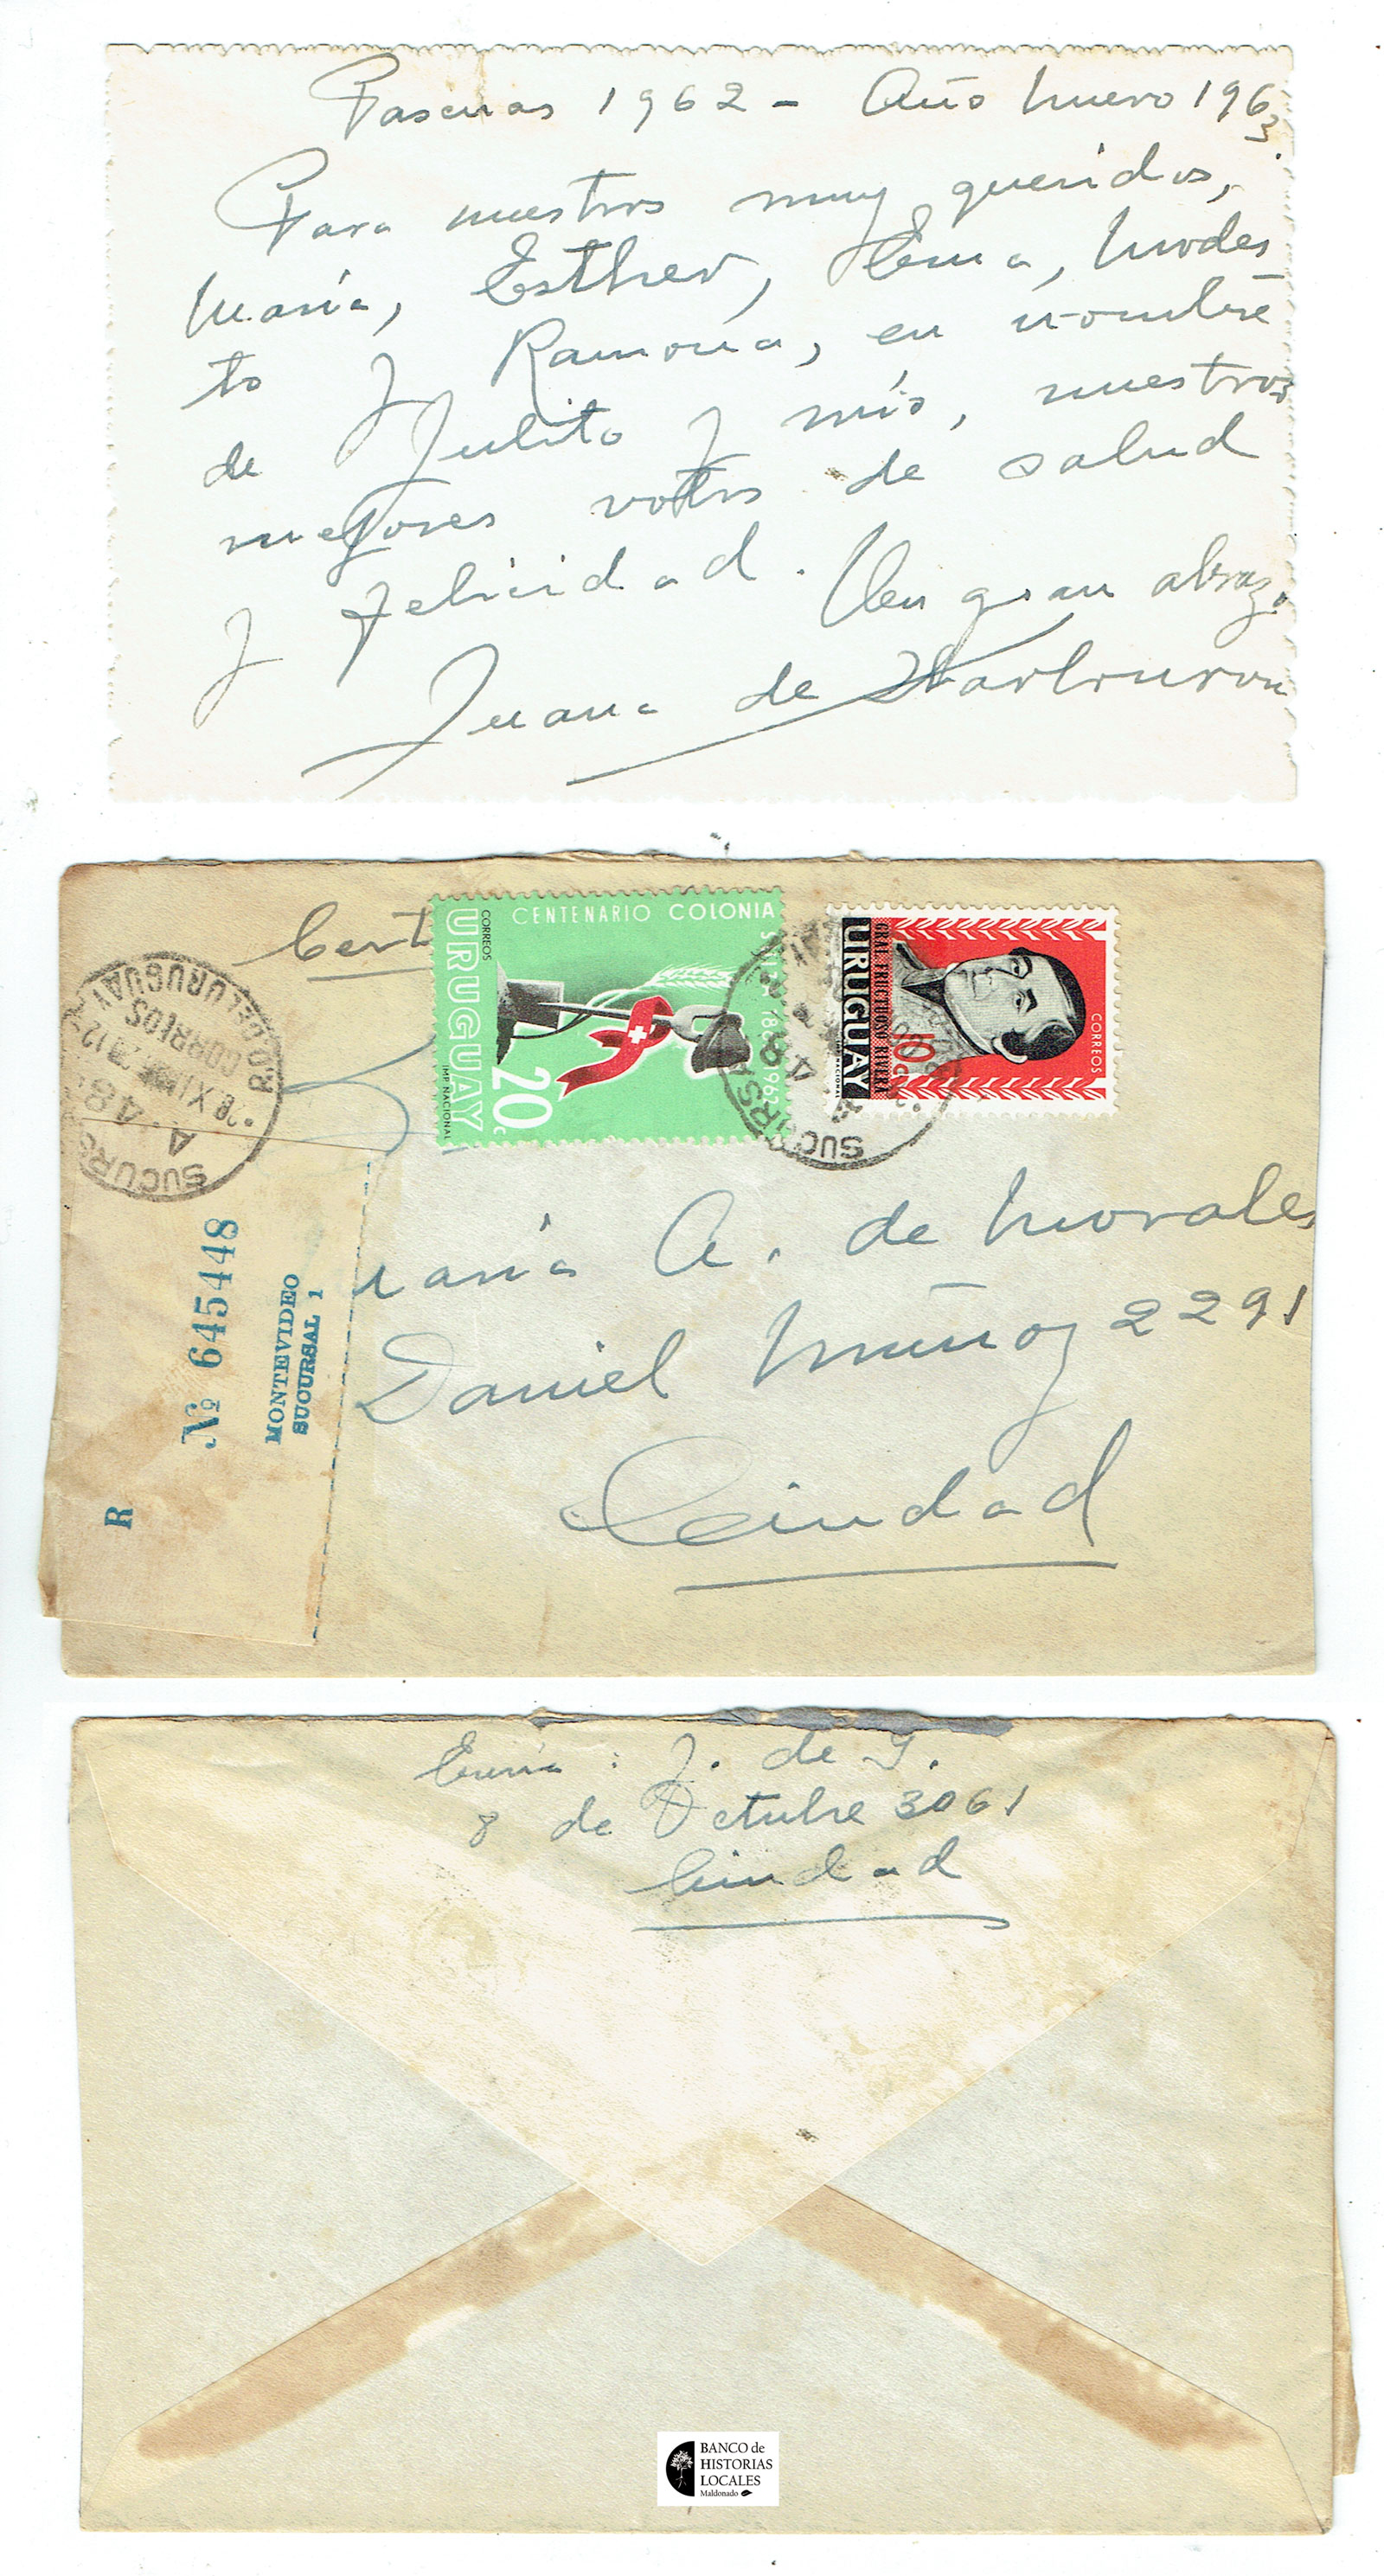 Pascuas 1962 - Año Nuevo 1963.
Para nuestros muy queridos,
María, Esther, Ema, Modes
to y Ramona, en nombre
de Julito y mío, nuestros
mejores votos de salud
y felicidad. Un gran abrazo
Juana de Ibarbourou
Cert
CENTENARIO COLONIA
SUIZA 1862-1962
CORREOS
URUGUAY
IMP. NACIONAL
20c
CORREOS
GRAL. FRUCTUOSO RIVERA
URUGUAY
10
SUCURSAL
A. 48
CORREOS
R.O. DEL URUGUAY
SUCURSAL
A 48
María A. de Morales
Daniel Muñoz 2291
Ciudad
R
№ 645448
MONTEVIDEO
SUCURSAL 1
J. de I.
8 de Octubre 3061
Ciudad
BANCO de
HISTORIAS
LOCALES
Maldonado